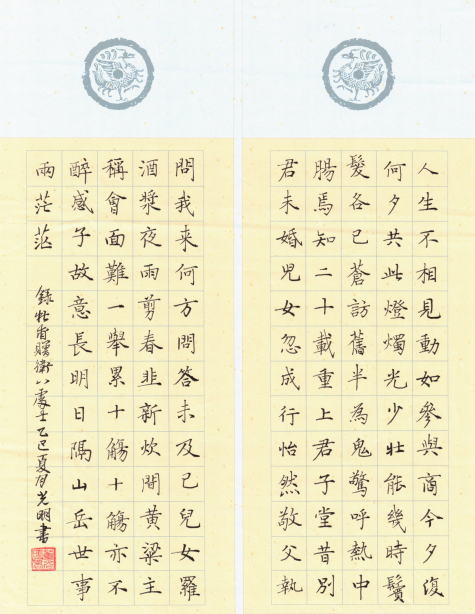 人生不相見動如參與商今夕復
何夕共此燈燭光少壯能幾時鬢
髮各已蒼訪舊半為鬼驚呼熱中
腸焉知二十載重上君子堂昔別
君未婚兒女忽成行怡然敬父執
問我來何方問答未及已兒女羅
酒漿夜雨剪春韭新炊間黃粱主
稱會面難一舉累十觴十觴亦不
醉感子故意長明日隔山岳世事
兩茫茫
錄杜甫贈衛八處士乙巳夏月光明書